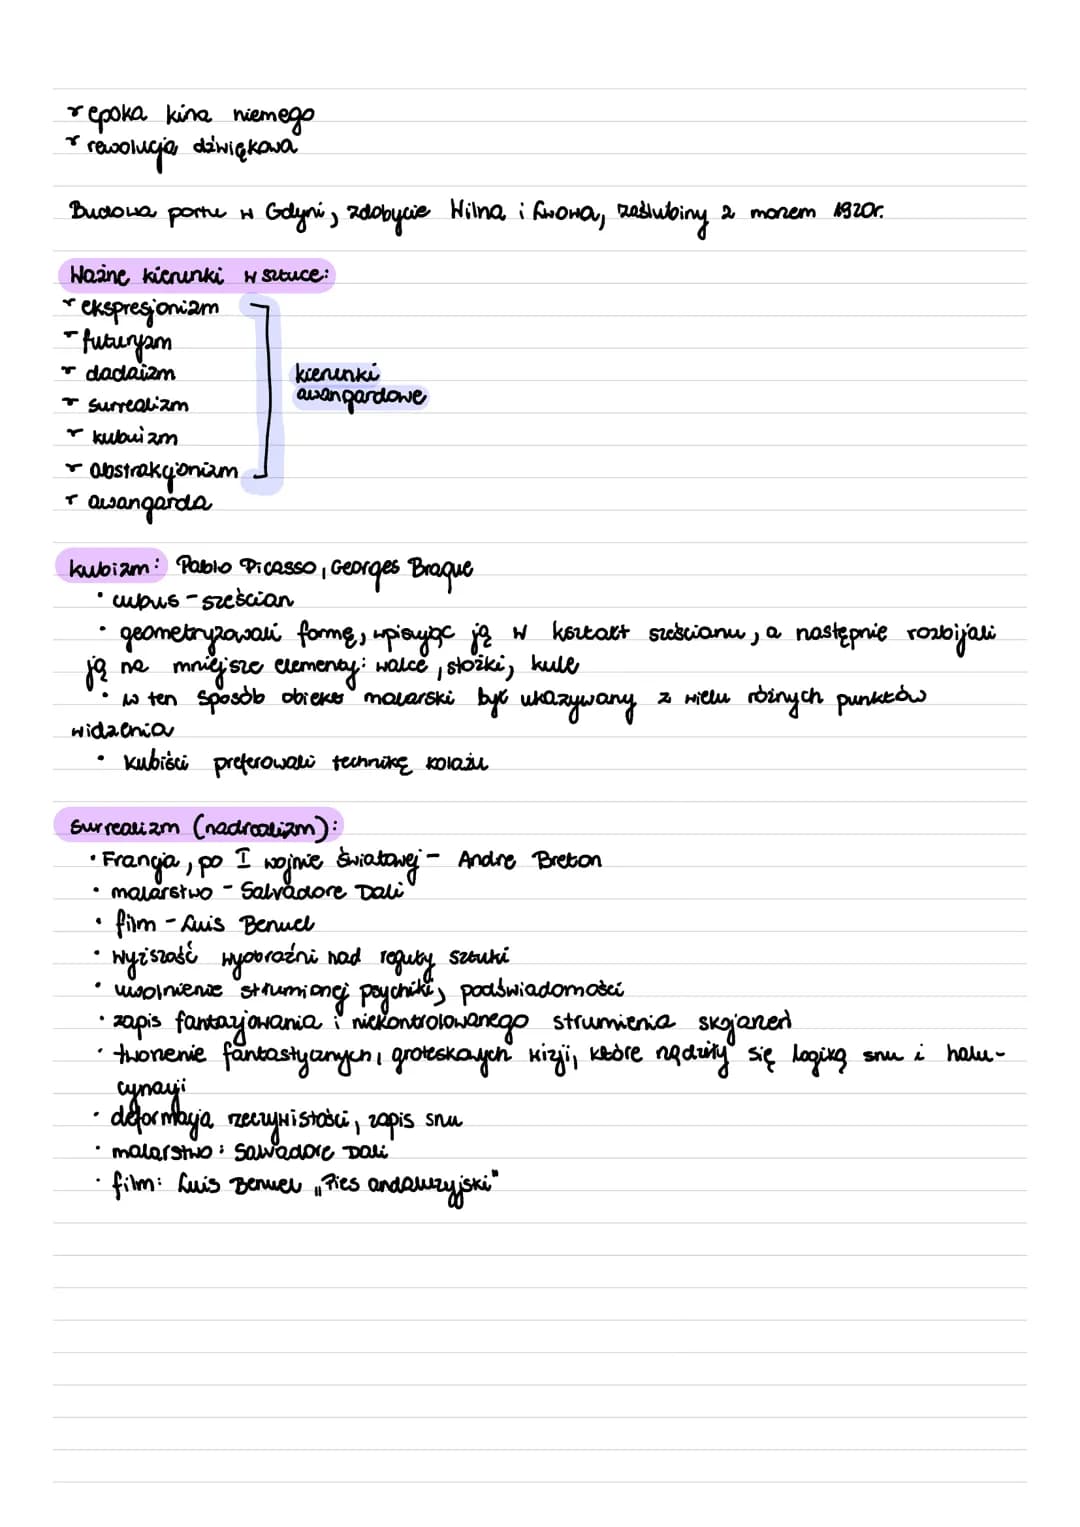 - epoka kina niemego
- rewolucja dźwiękowa
Budowa portu w Gdyni, zdobycie Wilna i Lwowa, zaślubiny z morzem 1920r.
Ważne kierunki w sztuce:
- ekspresjonizm
- futuryzm
- dadaizm
kierunki
- surrealizm
awangardowe
- kubuizm
- abstrakcjonizm
- awangarda
kubizm: Pablo Picasso, Georges Braque
• cubus - sześcian
• geometryzowali formę, wpisując ją w kształt sześcianu, a następnie rozbijali
ją na mniejsze elementy: walce, stożki, kule
• w ten sposób obiekt malarski był ukazywany z wielu różnych punktów
widzenia
• kubiści preferowali technikę kolażu
surrealizm (nadrealizm):
• Francja, po I wojnie światowej - Andre Breton
• malarstwo - Salvadore Dali
• film - Luis Benuel
• wyższość wyobraźni nad reguły sztuki
• uwolnienie stłumionej psychiki, podświadomości
• zapis fantazjowania i niekontrolowanego strumienia skojarzeń
• tworzenie fantastycznych, groteskowych wizji, które rządziły się logiką snu i halu-
cynacji
• deformacja rzeczywistości, zapis snu
• malarstwo: Salwadore Dali
• film: Luis Benuel „Pies andaluzyjski"